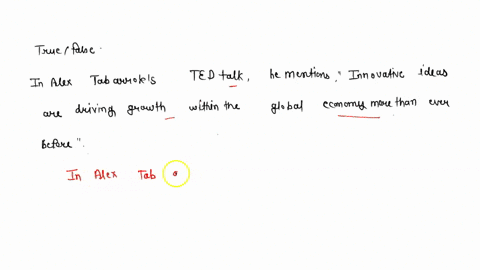 True/false.
In Alex Tabarrok's TED talk, he mentions, "Innovative ideas
are driving growth within the global economy more than ever
before".
In Alex Tab